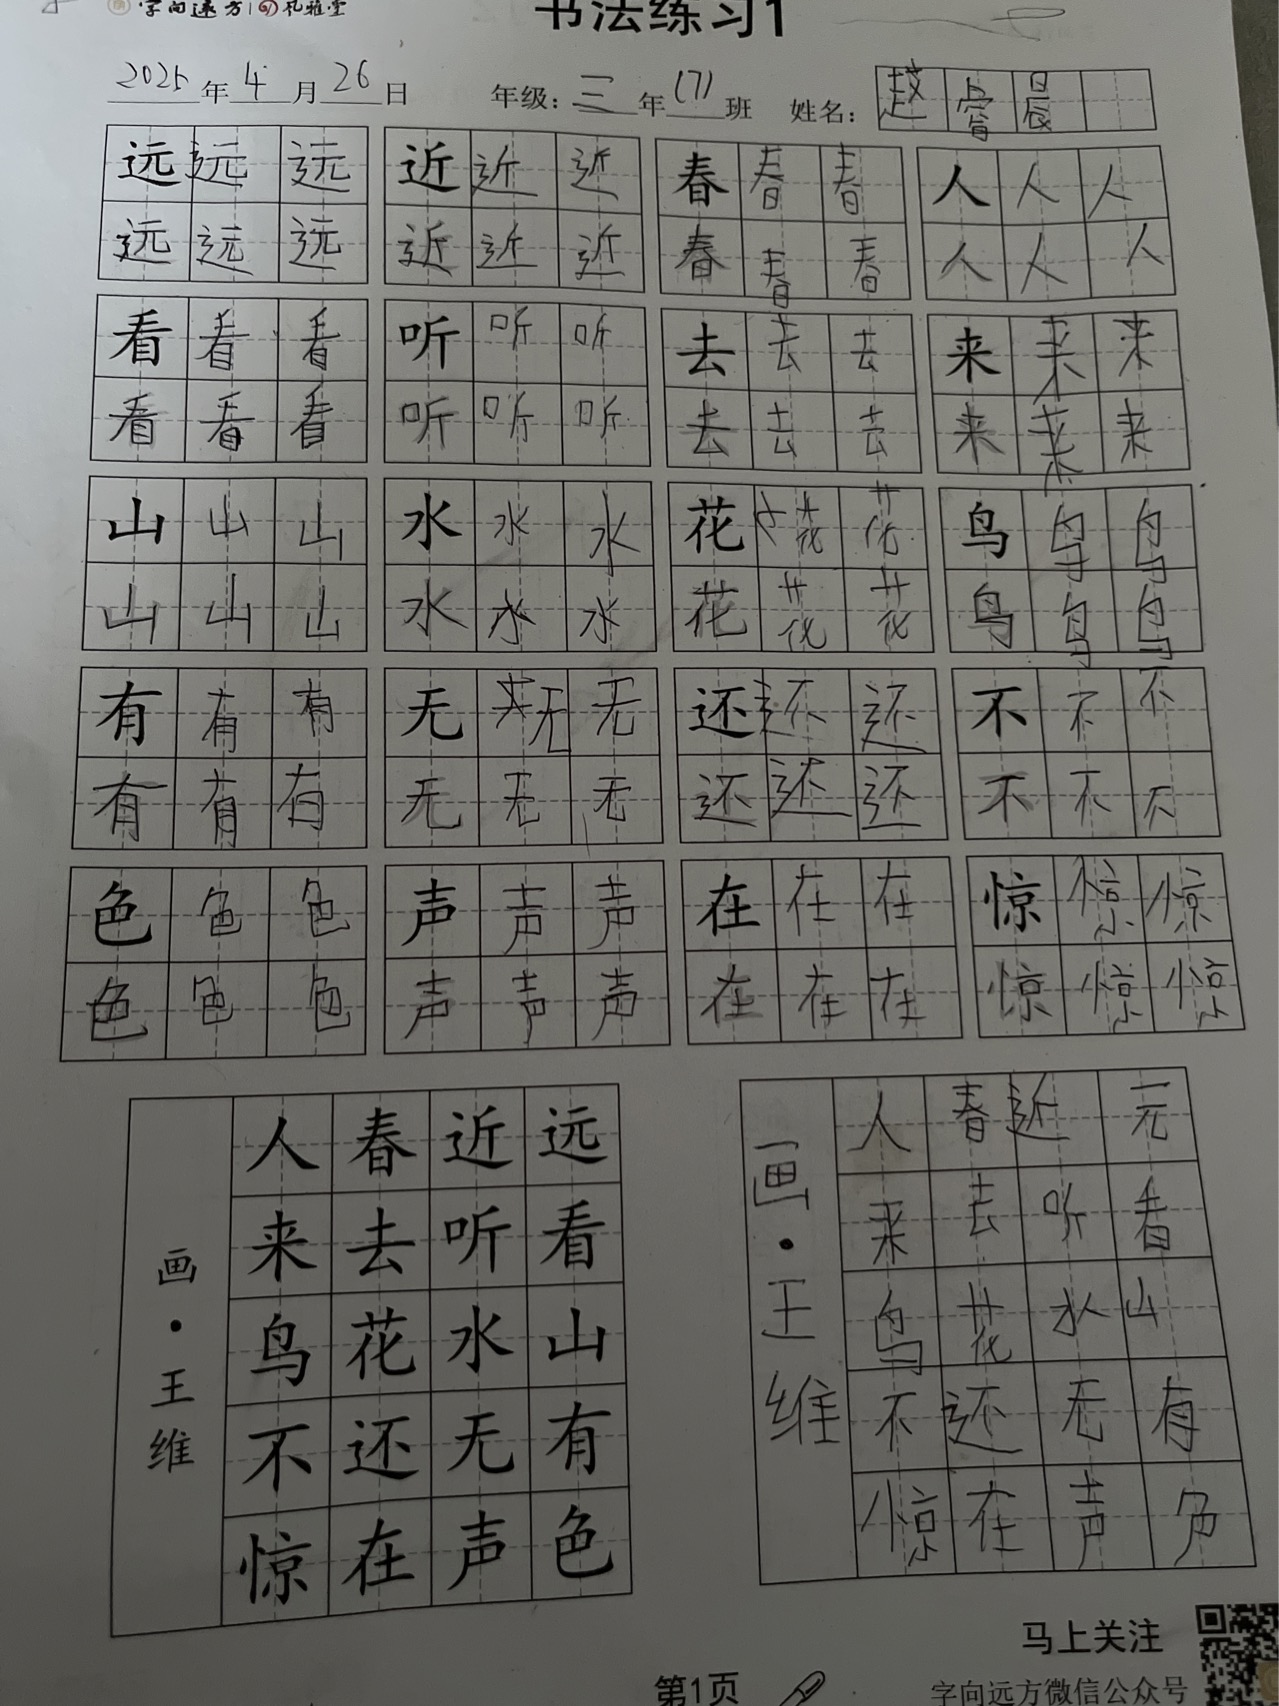 字向远方 礼雅堂
书法练习1
2025年4月26日 年级：三年(7)班 姓名：赵睿晨
远远远 近近近 春春春 人人人
远远远 近近近 春春春 人人人
看看看 听听听 去去去 来来来
看看看 听听听 去去去 来来来
山山山 水水水 花花花 鸟鸟鸟
山山山 水水水 花花花 鸟鸟鸟
有有有 无无无 还还还 不不不
有有有 无无无 还还还 不不不
色色色 声声声 在在在 惊惊惊
色色色 声声声 在在在 惊惊惊
远看山有色
近听水无声
春去花还在
人来鸟不惊
画·王维
元看山有色
近听水无声
春去花还在
人来鸟不惊
画·王维
马上关注
第1页
字向远方微信公众号